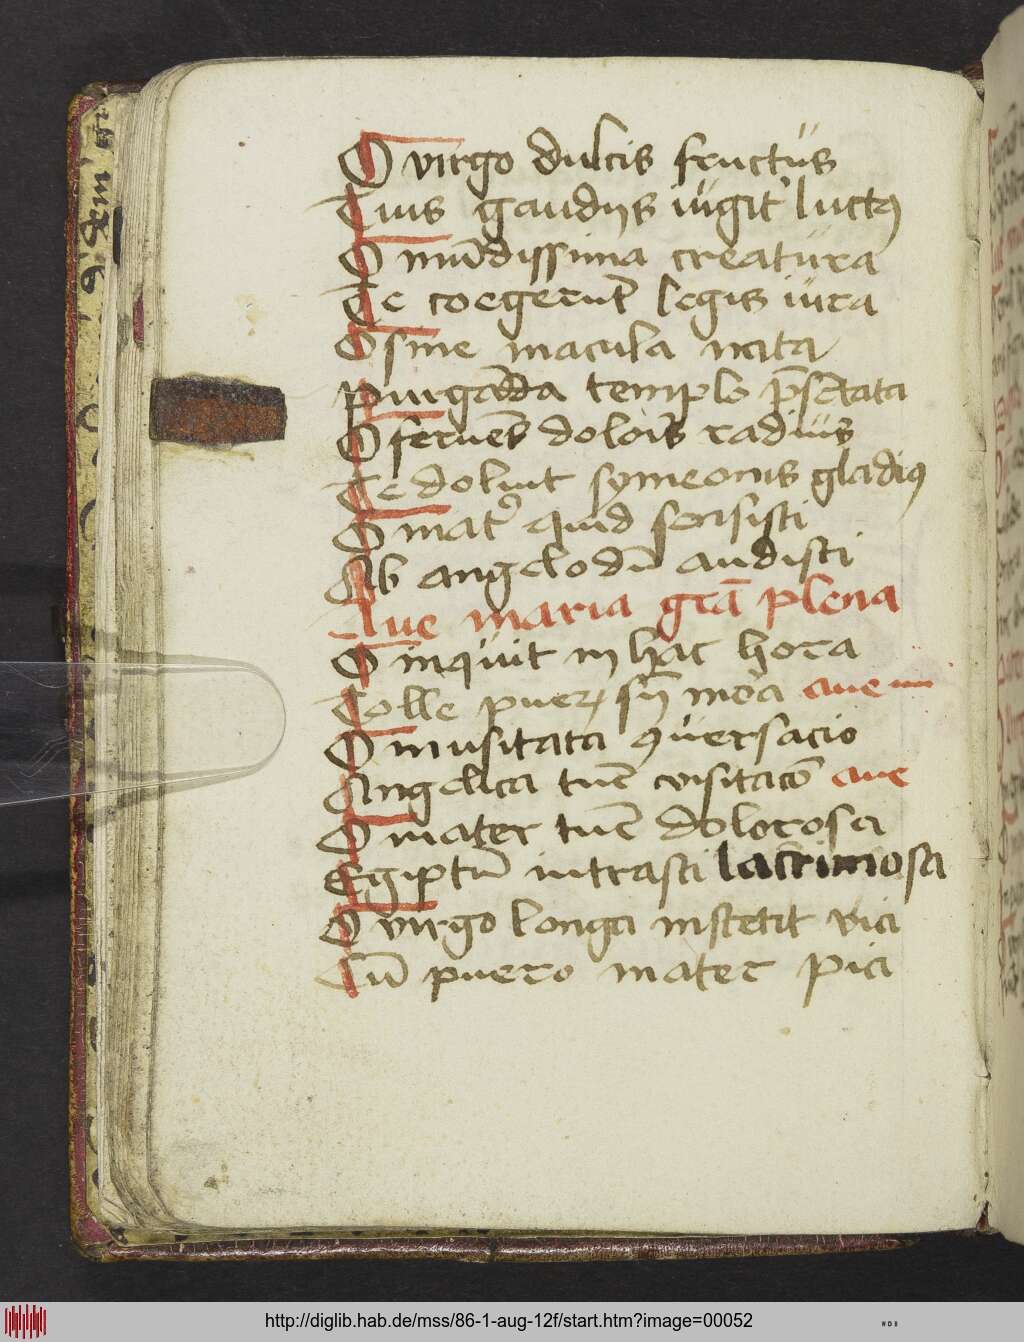 O virgo dulcis fructus
Tuis gaudiis iugit' luctꝰ
O mūdissima creatura
Te coegerūt legis iura
O sine macula nata
Purgāda templo p̄sētata
O feruēs dolōis radius
Te doluit symeonis gladiꝰ
O mat' quid sensisti
Ab angelo dū audisti
Aue maria grā plena
O inquit in hac hora
Tolle pueꝝ sn̄ mōa aue m
O inusitata ꝯuersacio
Angelica tūc visitacō aue
O mater tūc dolorosa
Egiptū intrasti lacrimosa
O virgo longa instetit via
Cū puero mater pia
http://diglib.hab.de/mss/86-1-aug-12f/start.htm?image=00052